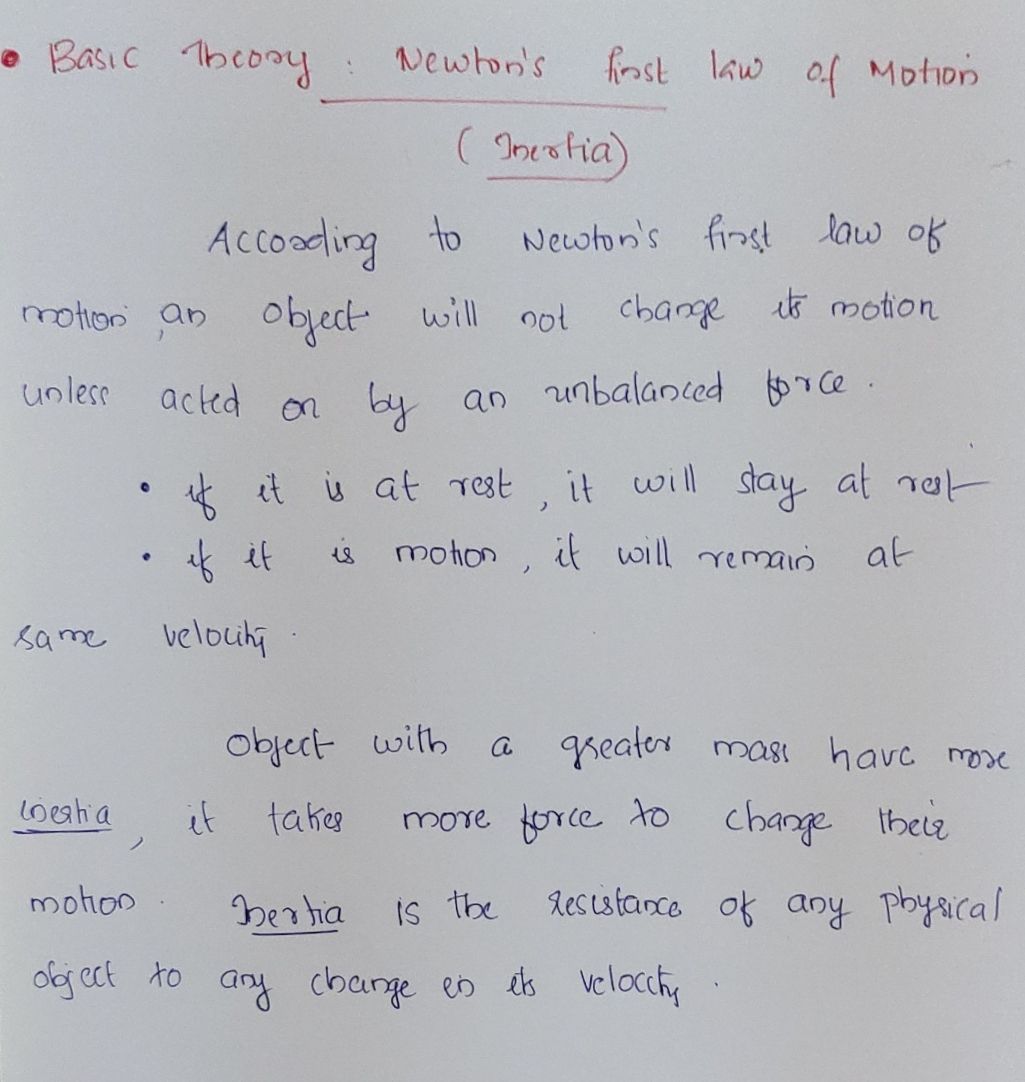 • Basic Theory : Newton's first law of Motion
(Inertia)
According to Newton's first law of
motion, an object will not change its motion
unless acted on by an unbalanced force.
• if it is at rest, it will stay at rest
• if it is motion, it will remain at
same velocity.
Object with a greater mass have more
inertia, it takes more force to change their
motion. Inertia is the resistance of any physical
object to any change in its velocity.